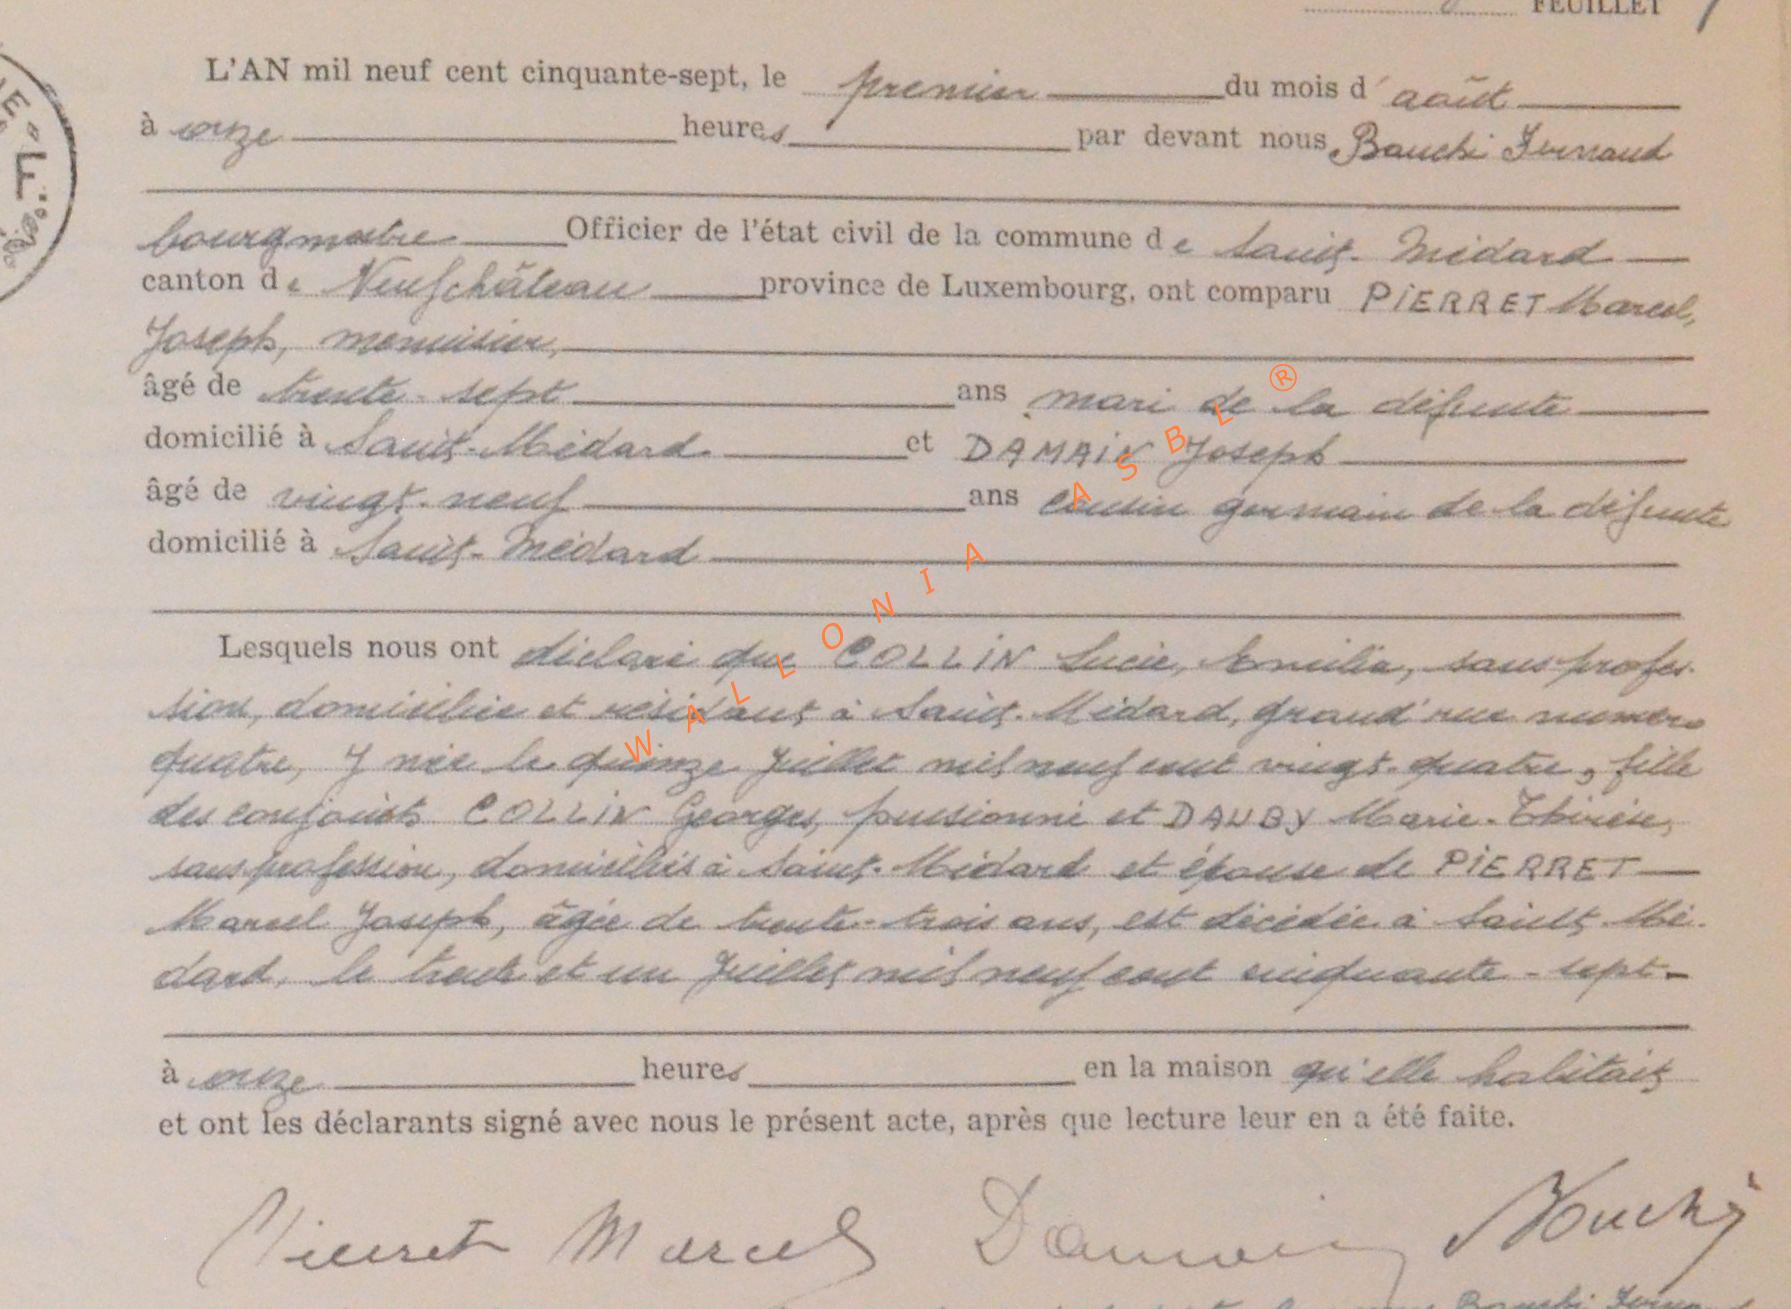 FEUILLET
L'AN mil neuf cent cinquante-sept, le premier du mois d' août
à onze heures par devant nous Bauchi Fernand
bourgmestre Officier de l'état civil de la commune de Saint-Médard
canton de Neufchâteau province de Luxembourg, ont comparu PIERRET Marcel,
Joseph, menuisier,
âgé de trente-sept ans mari de la défunte
domicilié à Saint-Médard et DAMAIN Joseph
âgé de vingt-neuf ans cousin germain de la défunte
domicilié à Saint-Médard
Lesquels nous ont déclaré que COLLIN Lucie, Emilia, sans profes-
sion, domiciliée et résidant à Saint-Médard, grand'rue numéro
quatre, y née le quinze juillet mil neuf cent vingt-quatre, fille
des conjoints COLLIN Georges, pensionné et DAUBY Marie-Thérèse,
sans profession, domiciliés à Saint-Médard et épouse de PIERRET
Marcel Joseph, âgée de trente-trois ans, est décédée à Saint-Mé-
dard, le trente et un juillet mil neuf cent cinquante-sept
à onze heures en la maison qu'elle habitait
et ont les déclarants signé avec nous le présent acte, après que lecture leur en a été faite.
Pierret Marcel Damain Bauchi
WALLONIA ASBL ®